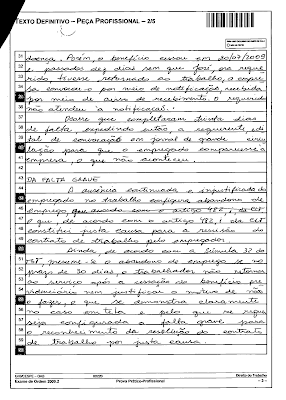 TEXTO DEFINITIVO – PEÇA PROFISSIONAL – 2/5
31 doença. Porém, o benefício cessou em 20/07/2009
32 e passados dez dias sem que José, ora reque
33 rido, tivesse retornado ao trabalho, a empre
34 sa convocou-o por meio de notificação, recebida
35 por meio de aviso de recebimento. O requerido
36 não atendeu a notificação.
37 que completaram trinta dias
38 de falta, expedindo então, a requerente, edi
39 tal de convocação em jornal de grande circu
40 lação para que o empregado comparecesse à
41 empresa, o que não aconteceu.
42
43 DA FALTA GRAVE
44 A ausência continuada e injustificada do
45 empregado no trabalho configura abandono de
46 emprego que de acordo com o artigo 482, i, da CLT
47 o que, de acordo com o artigo 482, i, da CLT
48 constitui justa causa para a rescisão do
49 contrato de trabalho pelo empregador.
50 Ainda, de acordo com a Súmula 32 do
51 TST presume-se o abandono de emprego se no
52 prazo de 30 dias, o trabalhador não retorna
53 ao serviço após a cessação do benefício pre
54 videnciário nem justificar o motivo de não
55 o fazer, o que se demonstra claramente
56 no caso em tela e pelo que se requer
57 seja configurada a falta grave para
58 o reconhecimento da rescisão do contrato
59 de trabalho por justa causa.
60
Exame de Ordem 2009.2
Prova Prático-Profissional
Direito do Trabalho
– 2 –